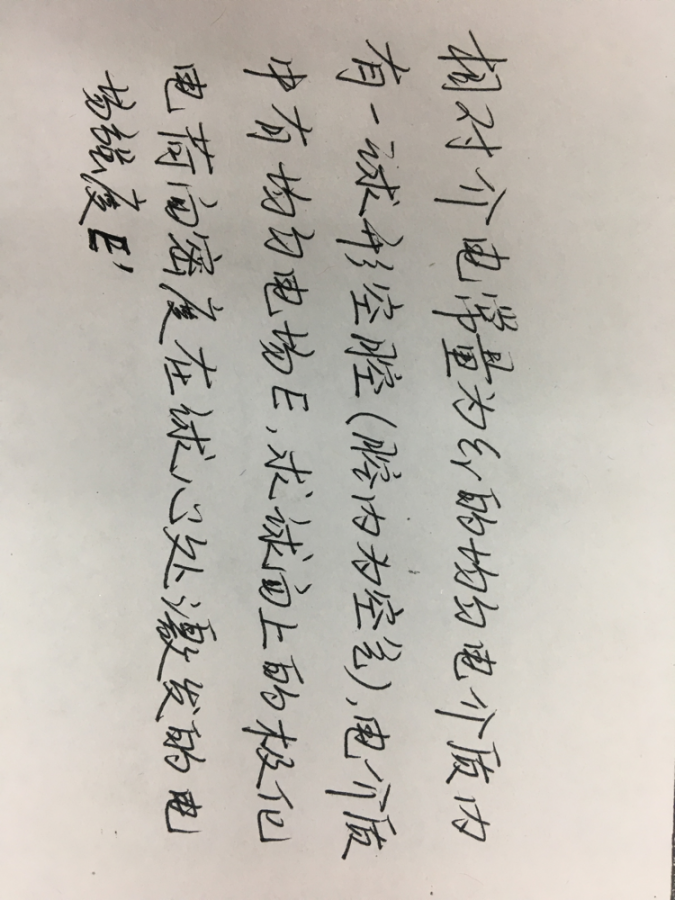 相对介电常量为εr的均匀电介质内
有一球形空腔(腔内为空气),电介质
中有均匀电场E,求球面上的极化
电荷面密度在球心处激发的电
场强度E'